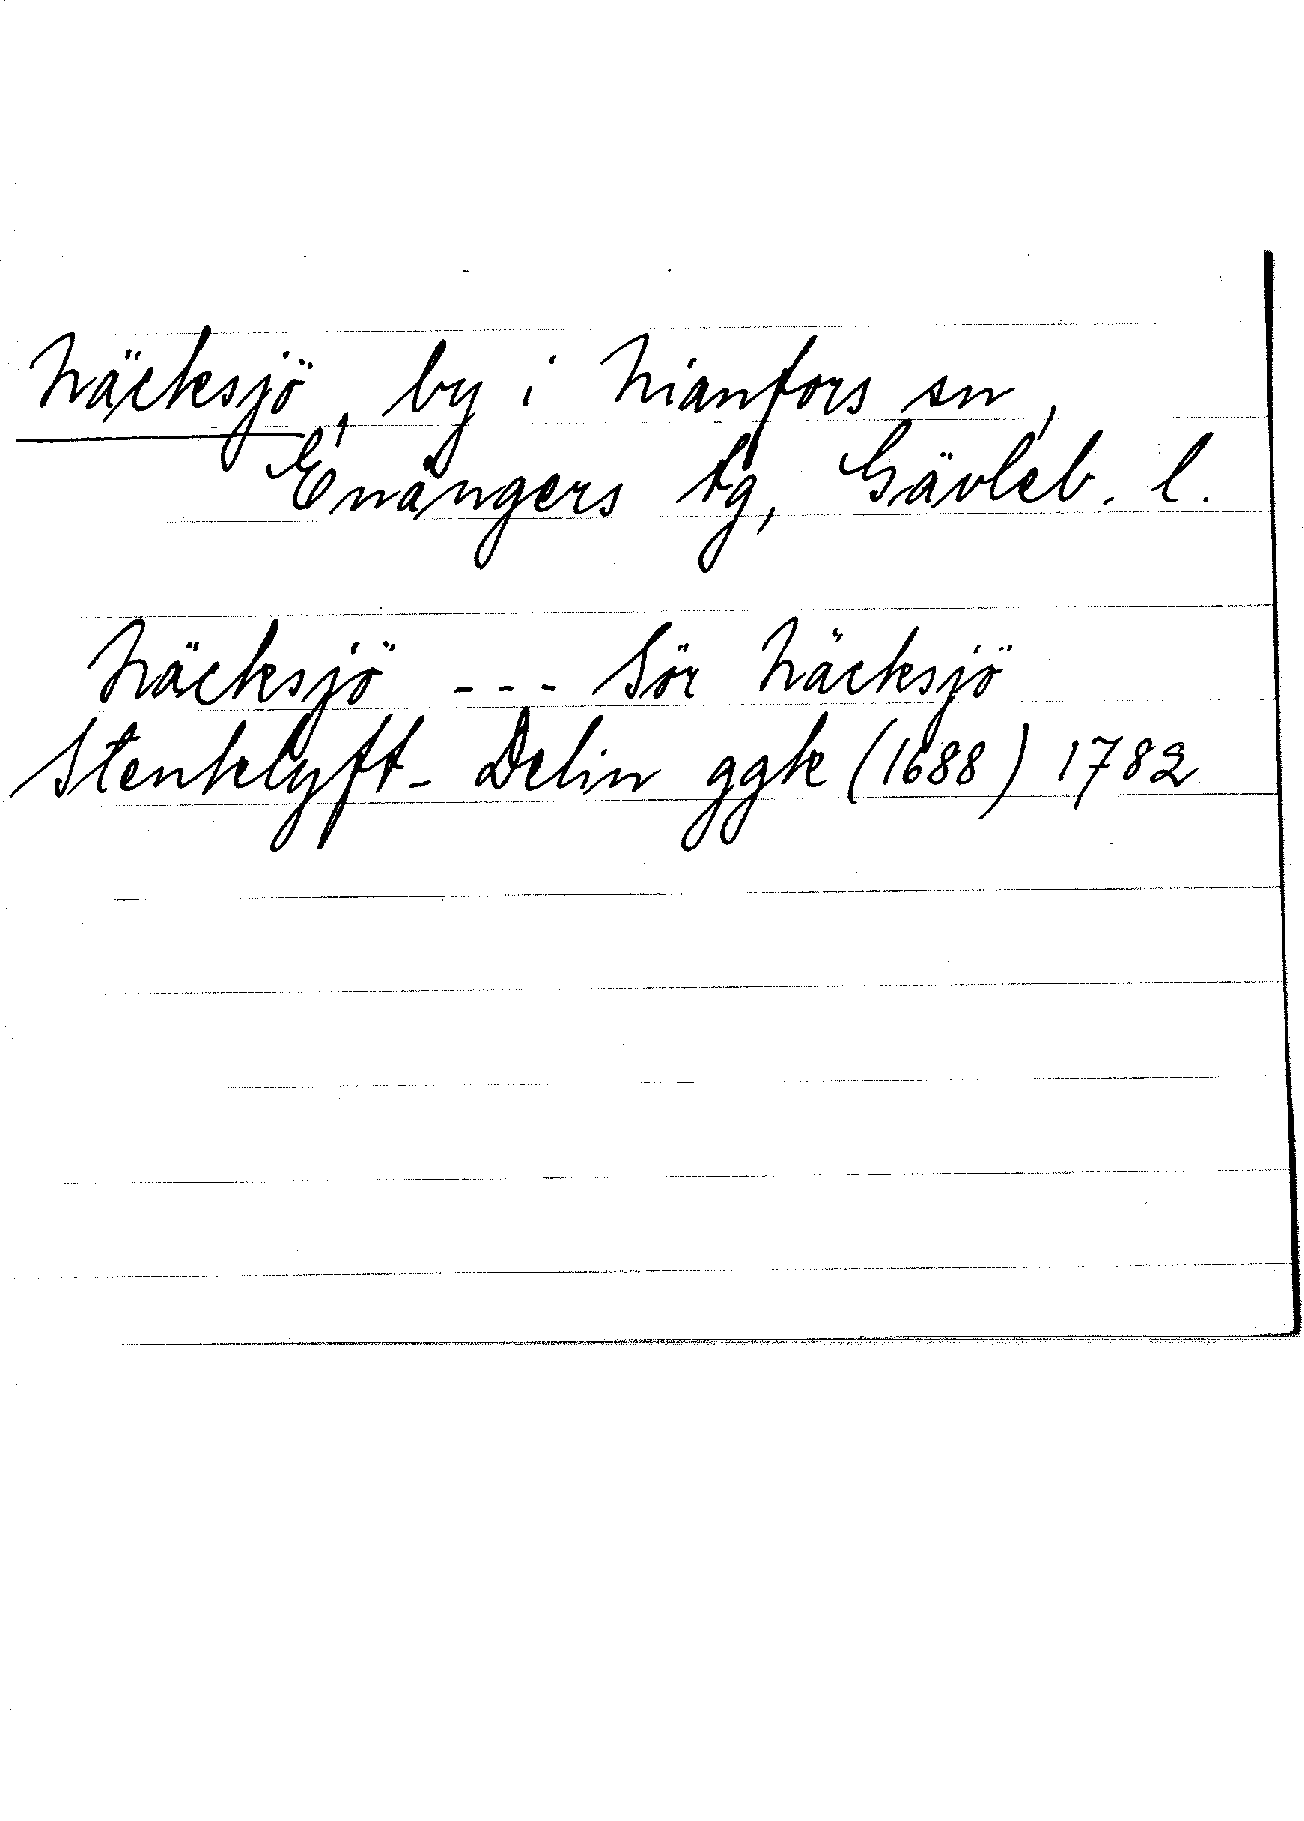 Näcksjö, by i Nianfors sn,
Enångers tg, Gävleb. l.
Näcksjö --- Sör Näcksjö
Stenklyft- Delin ggk (1688) 1782